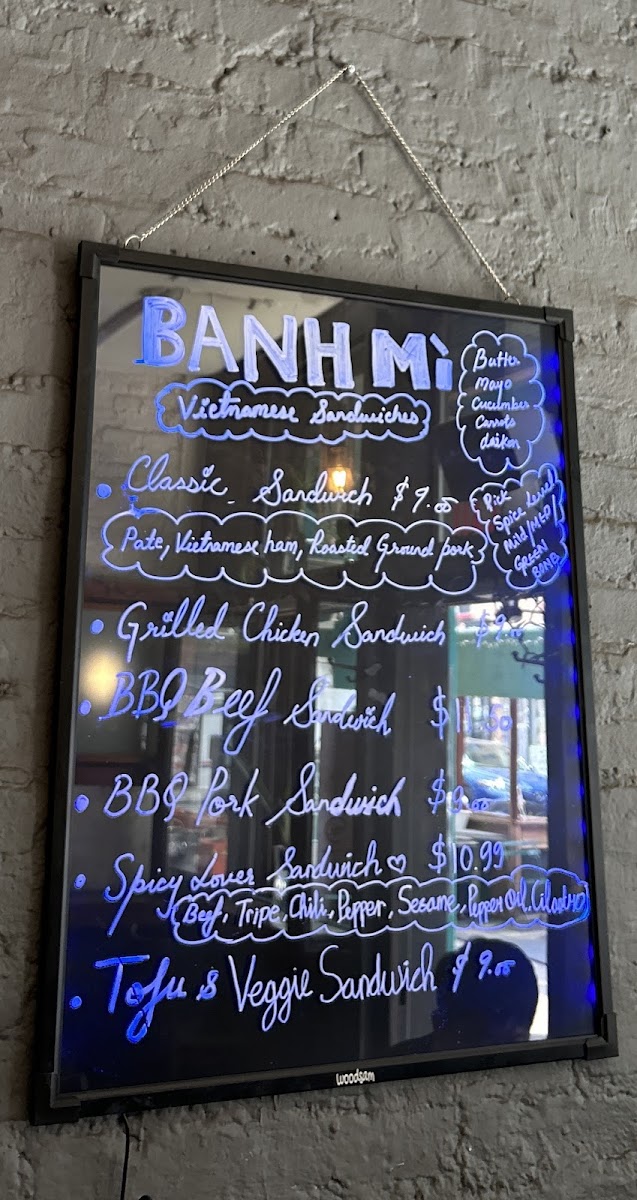 BANH Mì
Vietnamese Sandwiches
Butter
Mayo
Cucumber
Carrots
daikon
• Classic Sandwich $9.00
Pate, Vietnamese ham, Roasted Ground pork
Pick
Spice Level
Mild/MED/
GREEN
BOMB
• Grilled Chicken Sandwich $9.00
• BBQ Beef Sandwich $11.50
• BBQ Pork Sandwich $9.00
• Spicy Lover Sandwich ♡ $10.99
Beef, Tripe, Chili, Pepper, Sesame, Pepper Oil,
• Tofu & Veggie Sandwich $9.00
woodsam